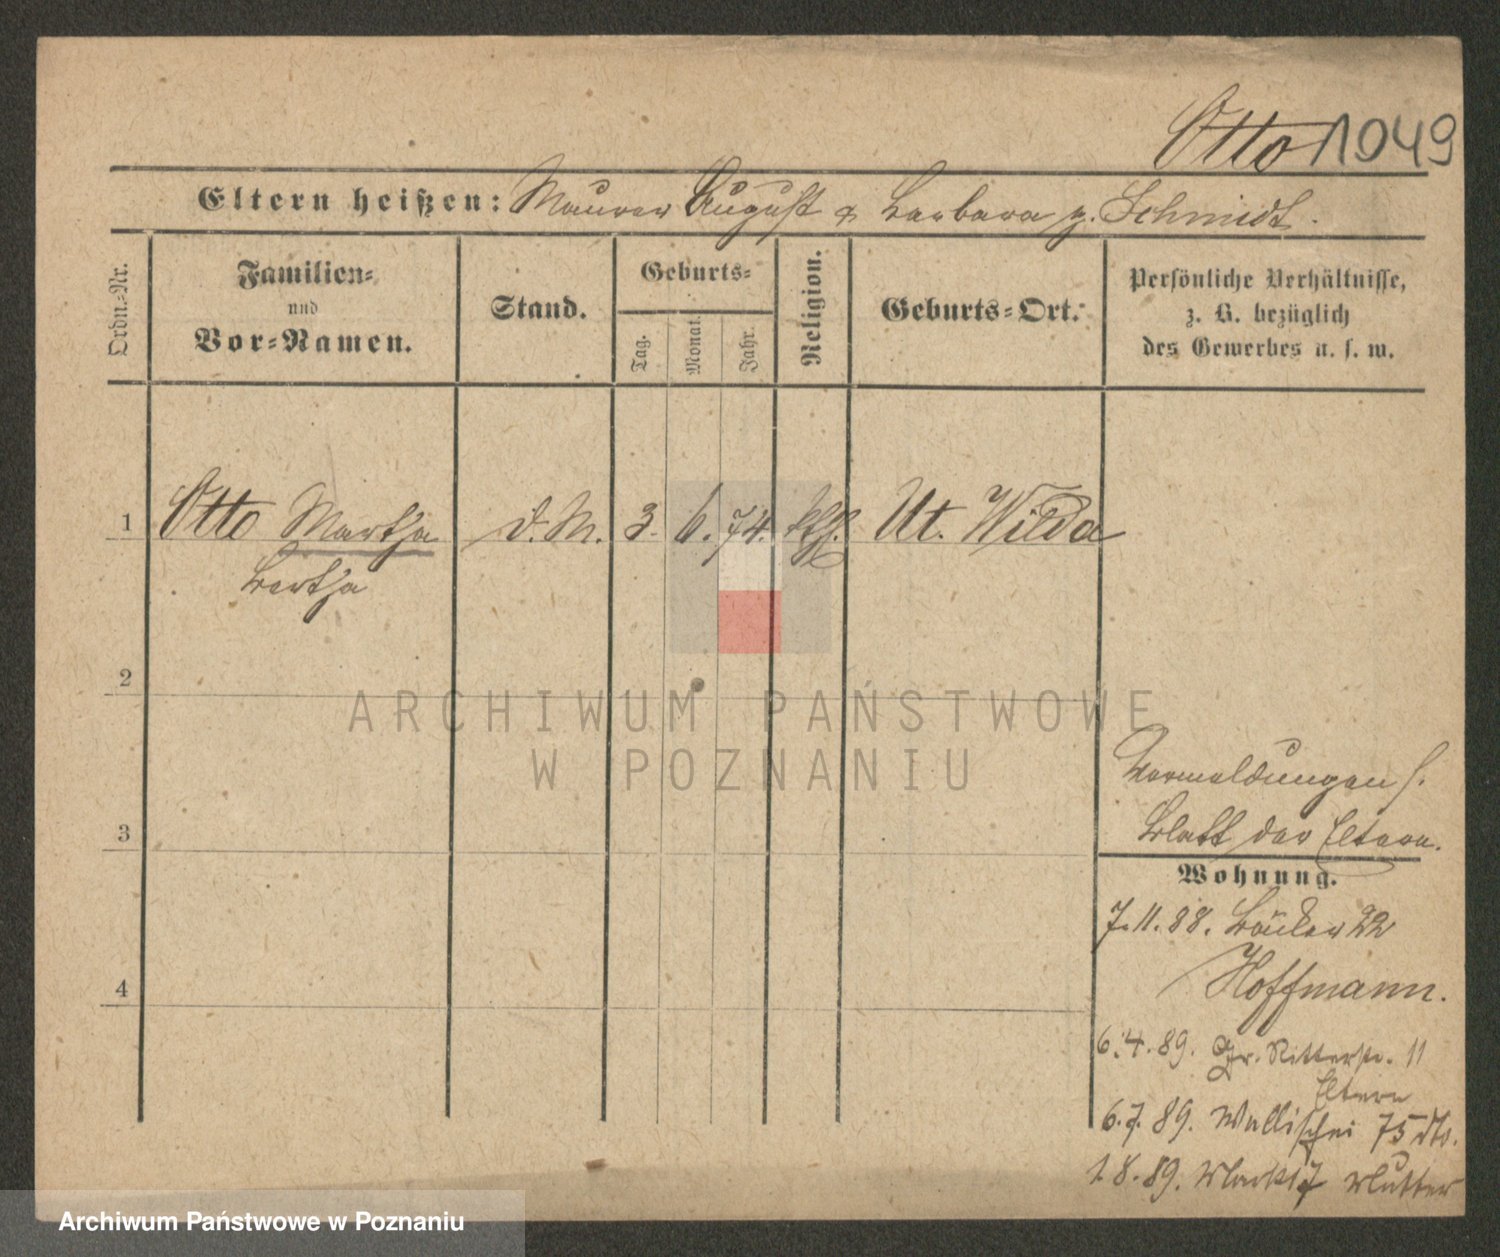 Otto 1049
Eltern heißen: Maurer August & Barbara g. Schmidt.
Ordn.-Nr.
Familien-
und
Vor-Namen.
Stand.
Geburts-
Tag.
Monat.
Jahr.
Religion.
Geburts-Ort.
Persönliche Verhältnisse,
z. B. bezüglich
des Gewerbes u. s. w.
1 Otto Martha d. M. 3. 6. 74. kth. Ut. Wilda
Bertha
2
ARCHIWUM PAŃSTWOWE
W POZNANIU
Vermeldungen s.
3
Blatt der Eltern.
Wohnung.
7.11.88. Bäcker 22
4
Hoffmann.
6.4.89. Gr. Ritterstr. 11
Eltern
6.7.89. Wallischei 75 dto.
1.8.89. Markt 7 Mutter
Archiwum Państwowe w Poznaniu